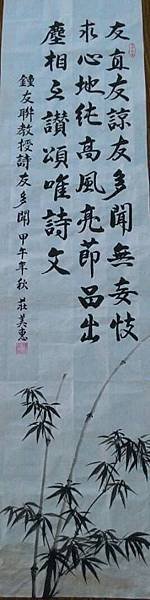 友直友諒友多聞無妄忮
求心地純高風亮節品出
塵相互讚頌唯詩文
鍾友聯教授詩友多聞 甲午年秋 莊美惠